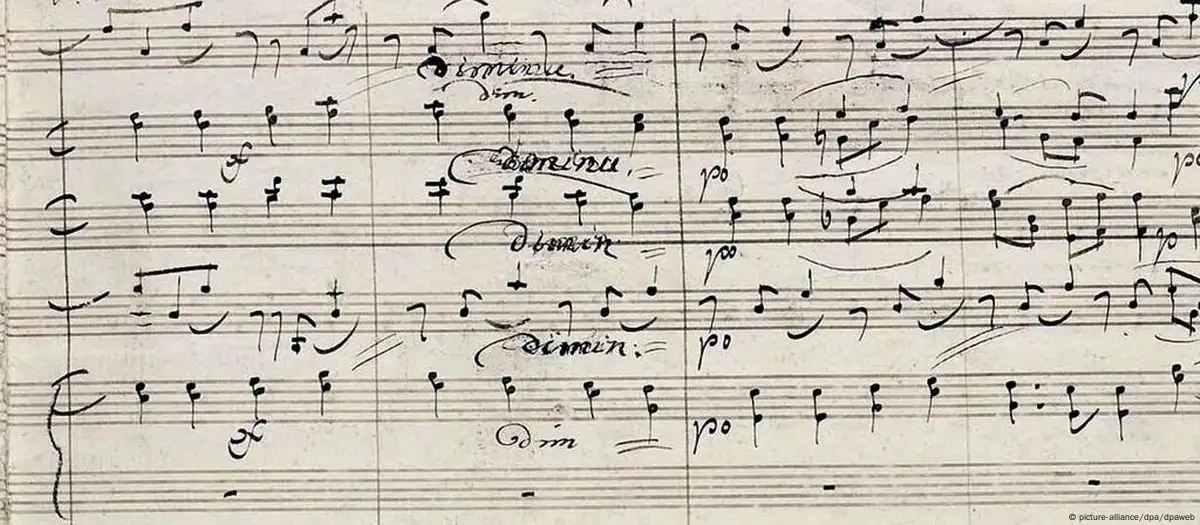 diminu.
dim.
diminu.
po
po
dimin
po
p
dimin:
po
dim
po
© picture-alliance/dpa/dpaweb